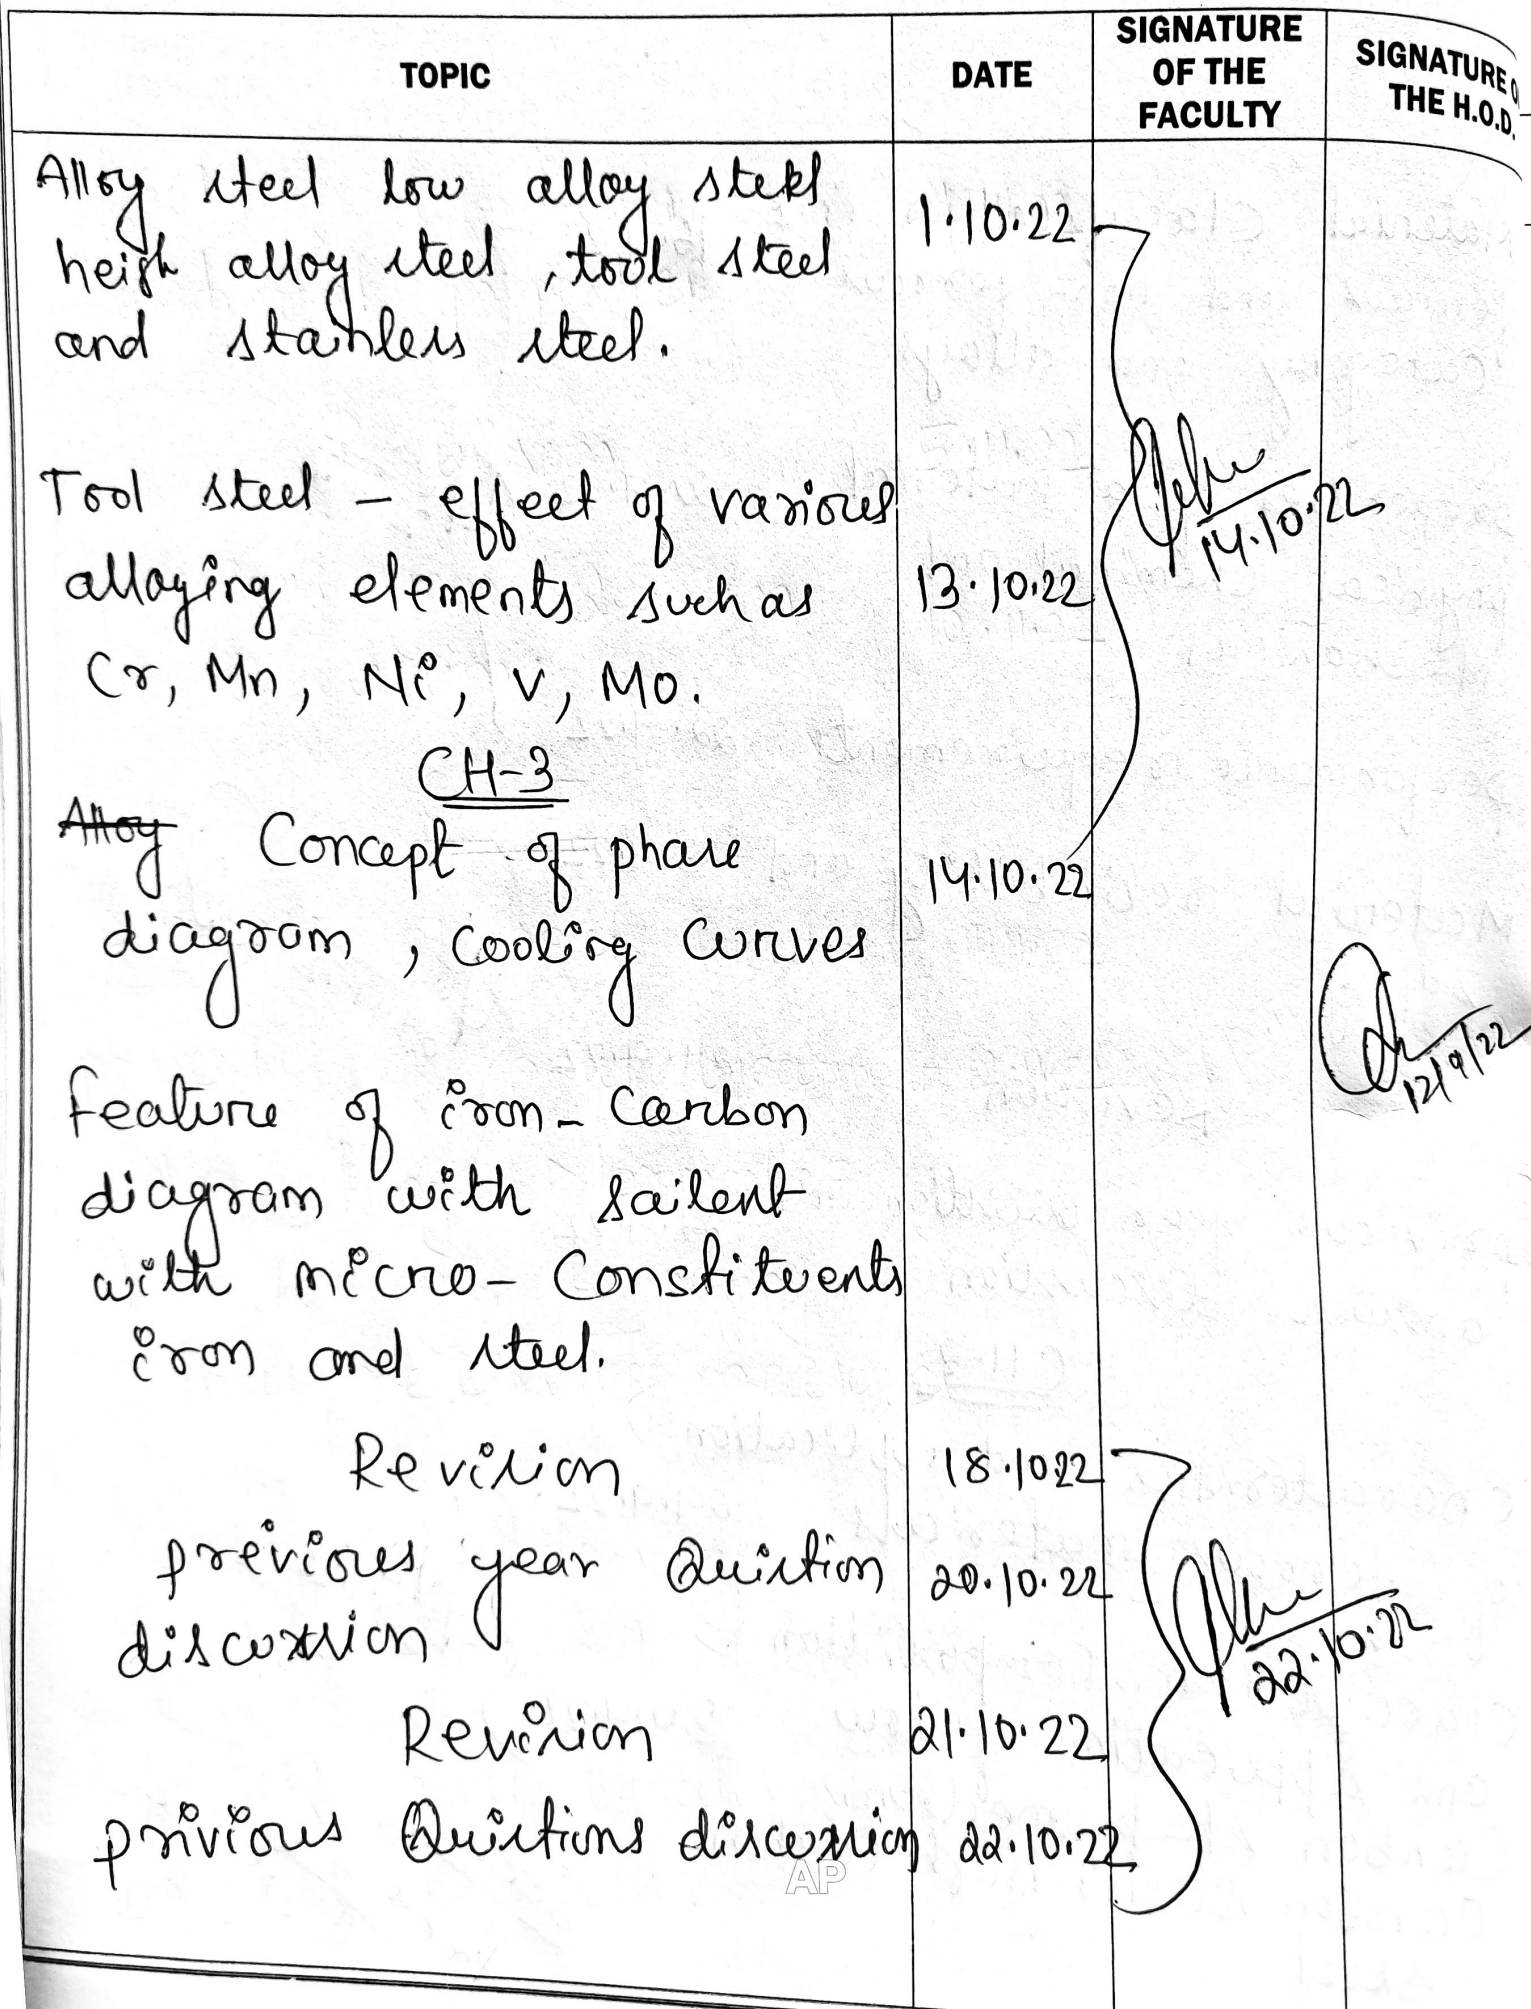 TOPIC DATE SIGNATURE OF THE FACULTY SIGNATURE O THE H.O.D.
Alloy steel low alloy steel
1.10.22
heigh alloy steel , tool steel
and stainless steel.
Tool steel - effect of various
alloying elements such as
13.10.22
Cr, Mn, Ni, V, Mo.
14.10.22
CH-3
Alloy Concept of phase
14.10.22
diagram , Cooling Curves
12/9/22
Feature of iron - Carbon
diagram with sailent
with micro - Constituents
iron and steel.
Revision 18.10.22
previous year Quistion 20.10.22
discussion
22.10.22
Revision 21.10.22
privious Quistions discussion 22.10.22
AP